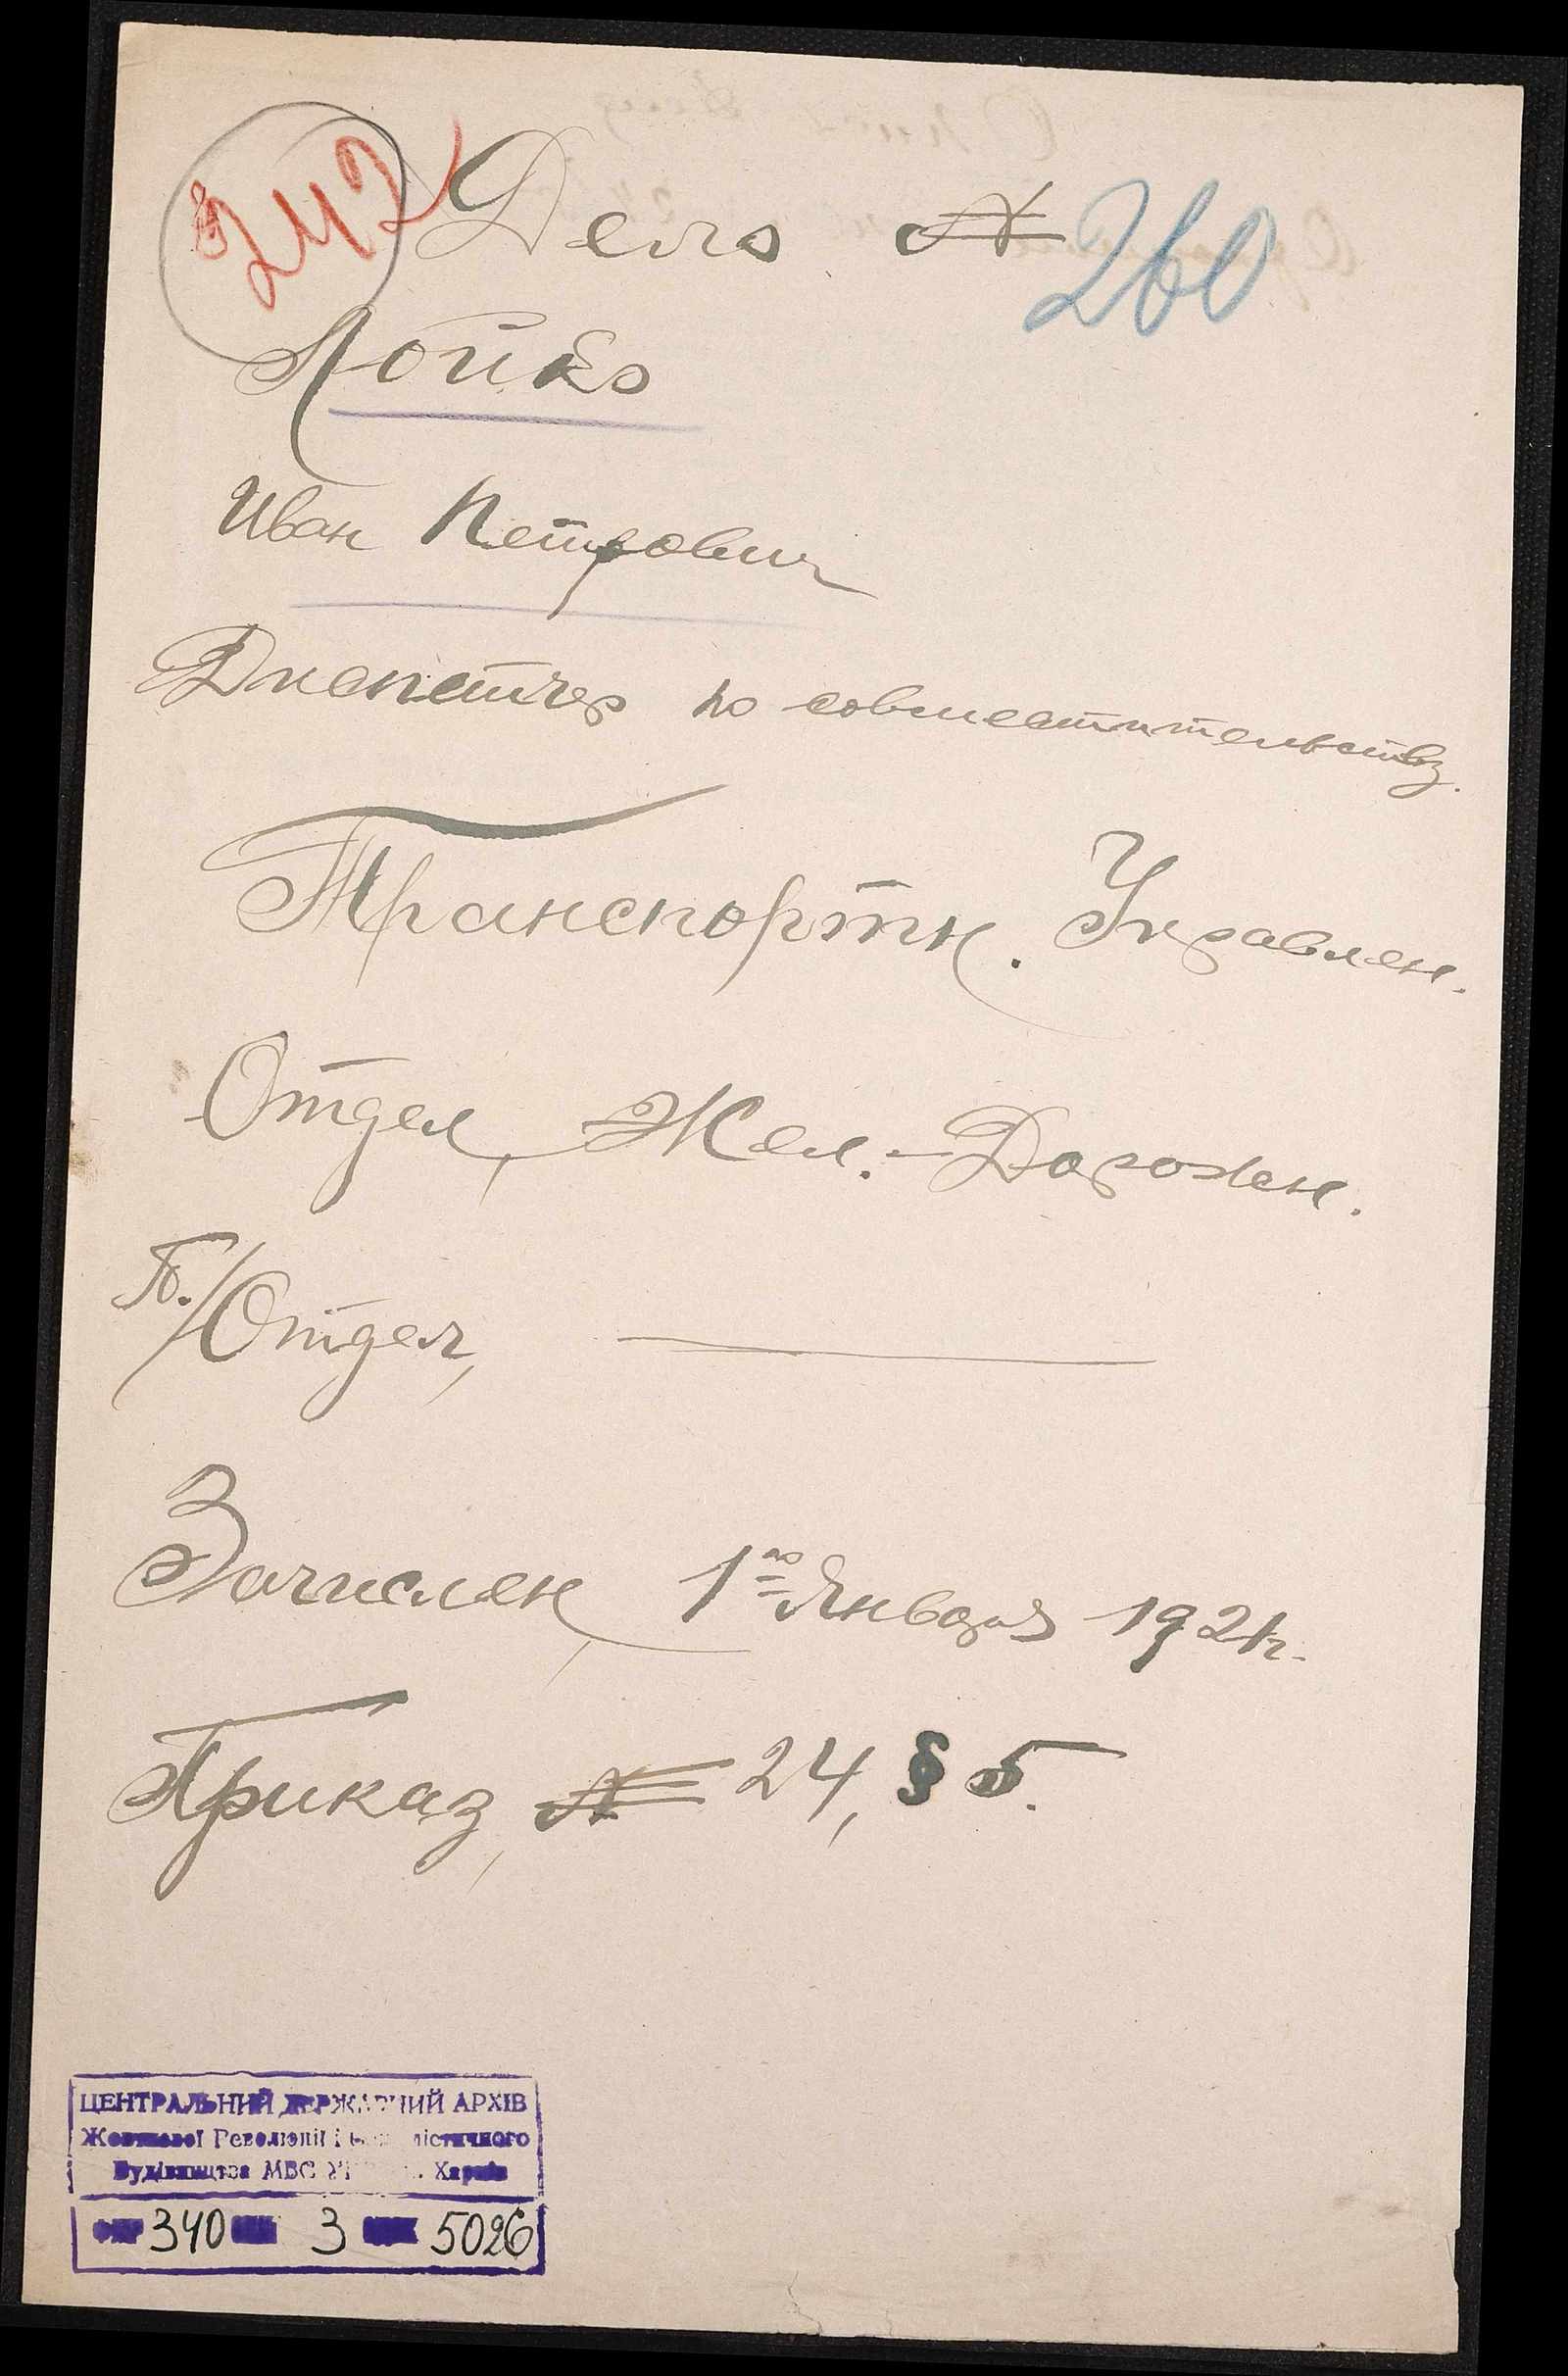 242 Дело № 260
Лойко
Иван Петрович
Диспетчер по совместительству.
Транспортн. Управлен.
Отдел, Жел.-Дорожн.
П./Отдел, —
Зачислен, 1го Января 1921г.
Приказ, № 24, § 5.
ЦЕНТРАЛЬНИЙ ДЕРЖАВНИЙ АРХІВ
Жовтневої Революції і Соціалістичного
Будівництва МВС УРСР м. Харків
ФНР 340 3 5026